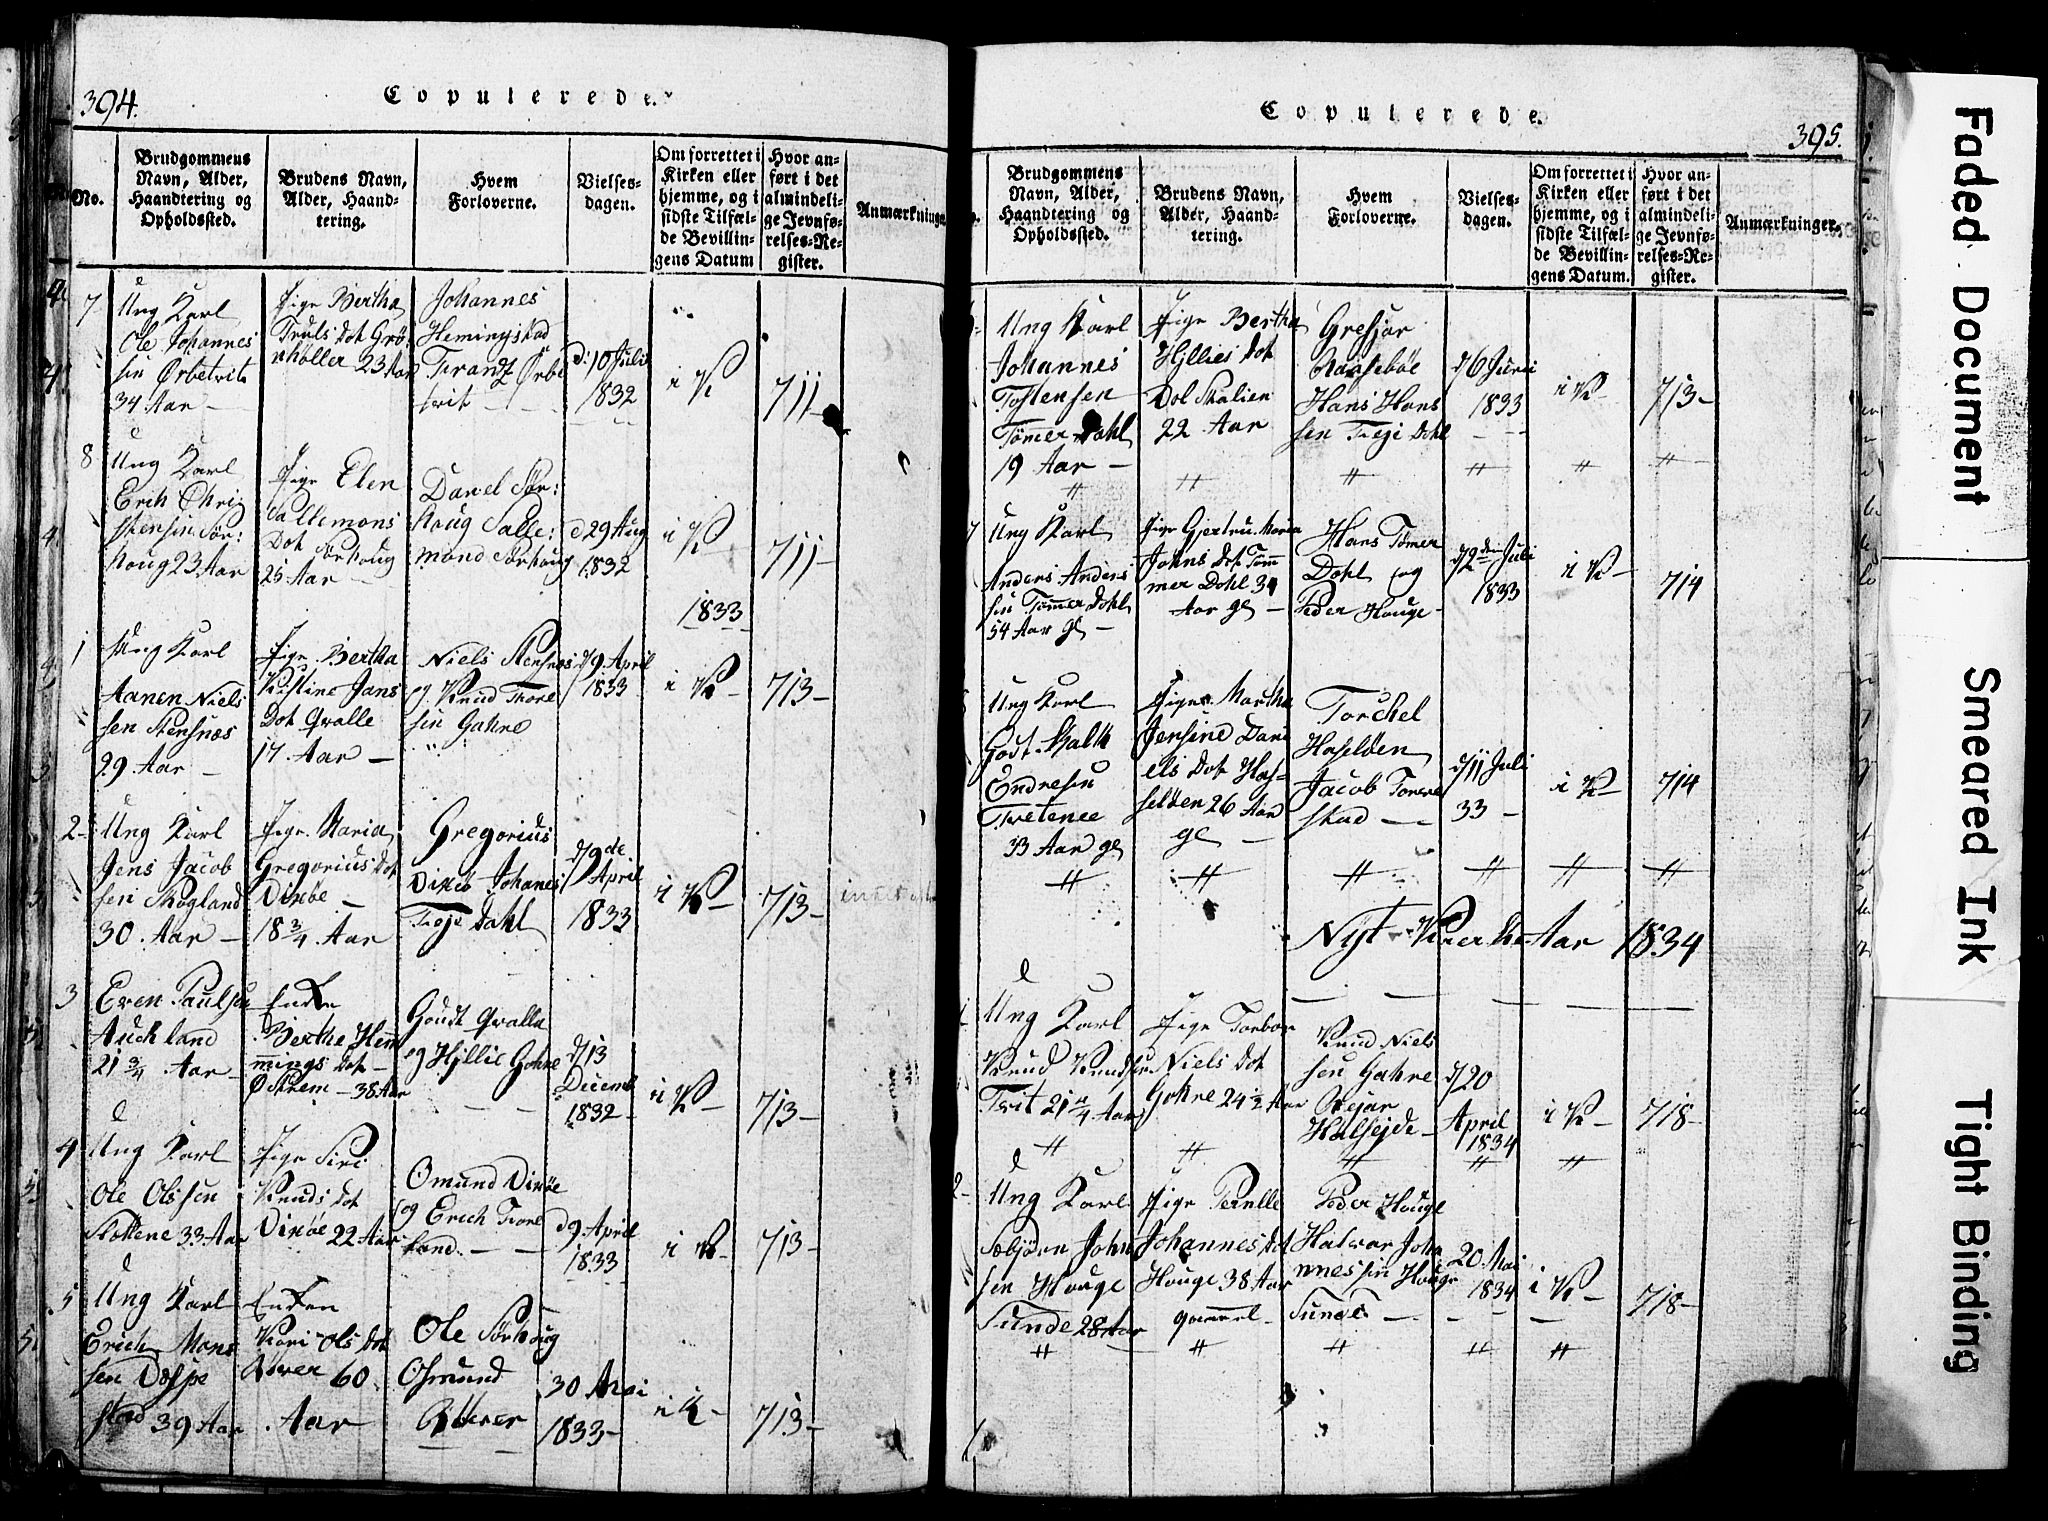 394.
Copulerede.
No.
Brudgommens Navn, Alder, Haandtering og Opholdssted.
Brudens Navn, Alder, Haandtering.
Hvem Forloverne.
Vielsesdagen.
Om forrettet i Kirken eller hjemme, og i sidste Tilfælde Bevillingens Datum
Hvor anført i det almindelige Jevnførelses-Register.
Anmærkninge
7
Ung Karl
Ole Johannes
sen Ørbetvit
34 Aar —
Pige Bertha
Truls Dot Grö
nholler 23 Aar
Johannes
Hemingstad
Frantz Ørbe
tvit —
d: 10 Julii
1832
i K
711
8
Ung Karl
Erich Chri
stensen Sør:
houg 23 Aar
Pige Elen
Sallemons
Dot Sørhoug
25 Aar
Daniel Sør:
houg Salle:
mond Sørhoug
d 29 Aug
1832
i K
711
1833
1
Ung Karl
Aanen Niels
sen Stensnæs
29 Aar —
Pige Bertha
Kirstine Jans
Dot Qvalle
17 Aar —
Niels Stensnæs
og Knud Tore
sen Gahre
d 9 April
1833
i K —
713 —
2
Ung Karl
Jens Jacob
sen Skogland
30 Aar —
Pige Maria
Gregorius Dot
Dixöe —
18 3/4 Aar
Gregorius
Dixöe Johanes
Treje Dahl
d 9de
April
1833
i K —
713 —
3
Even Paulsen
Auchland
21 3/4 Aar
Enken
Berthe Hem
mings Dot
Østrem — 38 Aar
Goudt Qvalle
og Hjllie Gahre
d 13
Decemb
1832
i K —
713 —
4
Ung Karl
Ole Olssen
33 Aar
Pige Siri
Knuds Dot
Dixöe 22 Aar
Omund Dixöe
og Erich
land. —
d 9 April
1833
i K —
713 —
5
Ung Karl
Erich Mons
sen
stad 39 Aar
Enken
Kari Ols Dot
60
Aar
Ole Sørhoug
Osmund
30 Mai
1833 —
i K —
713 —
Copulerede.
395.
Brudgommens Navn, Alder, Haandtering og Opholdssted.
Brudens Navn, Alder, Haandtering.
Hvem Forloverne.
Vielsesdagen.
Om forrettet i Kirken eller hjemme, og i sidste Tilfælde Bevillingens Datum.
Hvor anført i det almindelige Jevnførelses-Register.
Anmærkninger.
Ung Karl
Johannes
Tostensen
Tømer Dahl
19 Aar —
Pige Bertha
Hjllies Dot
Dol Skalien
22 Aar
Gresjar
Hans Hans
sen Treje Dahl
d 6 Juni
1833
i K —
713 —
Ung Karl
Anders Anders
sen Tømer Dohl
54 Aar gl
Pige Gjertru Maria
Johns Dot Tøm
mer Dohl 34
Aar gl —
Hans Tømer
Dohl og
Peder Houge —
d 2den Juli
1833
i K —
714
Ung Karl
Godtskalk
Endresen
Tvetenee
33 Aar gl
Pige Martha
Jensine Dani
els Dot Has
selden 26 Aar
gl —
Torchel
Haselden
Jacob
stad —
d 11 Juli
33 —
i K —
714
Nyt Kirerke Aar 1834
1
Ung Karl
Knud Knudsen
Tvit 21 1/4 Aar
Pige Torbor
Niels Dot
Gahre 24 1/2 Aar
Knud Niels
sen Gahre
Rejar
Halsejde —
d 20
April
1834
i K —
718 —
2 —
Ung Karl
Sebjørn John
sen Houge
Tunde 28 Aar
Pige Pernille
Johannes Dot
Houge 38 Aar
gammel —
Peder Houge
Halvar Joha
nnessen Houge
Tunde —
20. Mai
1834
i K —
718 —
Faded Document
Smeared Ink
Tight Binding